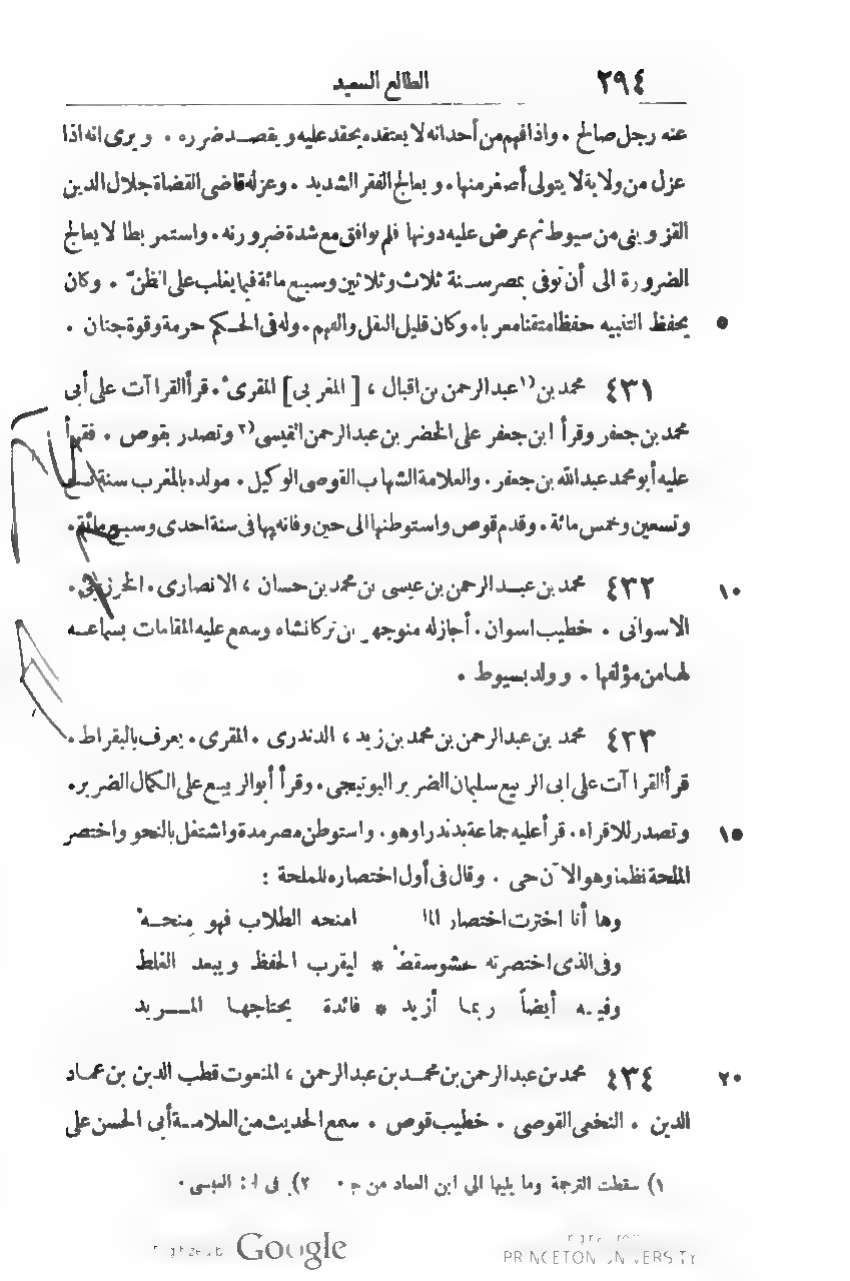 ٢٩٤ الطالع السعيد
عنه رجل صالح ٠ واذا فهم من أحد انه لا يعتقده يحقد عليه ويقصد ضرره ٠ ويرى انه اذا
عزل من ولاية لا يتولى أصغر منها ٠ ويعالج الفقر الشديد ٠ وعزله قاضى القضاة جلال الدين
القزوينى من سيوط ثم عرض عليه دونها فلم يوافق مع شدة ضرورته ٠ واستمر بطالا يعالج
الضرورة الى أن توفى بمصر سنة ثلاث وثلاثين وسبع مائة فيما يغلب على الظنّ ٠ وكان
٥ يحفظ التنبيه حفظا متقنا معربا ٠ وكان قليل النقل والفهم ٠ وله فى الحكم حرمة وقوة جنان ٠
٤٣١ محمد بن (١ عبد الرحمن بن اقبال ، [ المغربى ] المقرىء ٠ قرأ القراآت على أبى
محمد بن جعفر وقرأ ابن جعفر على الخضر بن عبد الرحمن القيسى (٢ وتصدر بقوص ٠ فقرأ
عليه أبو محمد عبد الله بن جعفر ٠ والعلامة الشهاب القوصى الوكيل ٠ مولده بالمغرب سنة تسع
وتسعين وخمس مائة ٠ وقدم قوص واستوطنها الى حين وفاته بها فى سنة احدى وسبع مائة ٠
١٠ ٤٣٢ محمد بن عبد الرحمن بن عيسى بن محمد بن حسان ، الانصارى ٠ الخزرجى ٠
الاسوانى ٠ خطيب اسوان ٠ أجاز له منوجهر بن تركانشاه وسمع عليه المقامات بسماعه
لها من مؤلفها ٠ وولد بسيوط ٠
٤٣٣ محمد بن عبد الرحمن بن محمد بن زيد ، الدندرى ٠ المقرى ٠ يعرف بالبقراط ٠
قرأ القراآت على ابى الربيع سليمان الضرير البوتيجى ٠ وقرأ أبو الربيع على الكمال الضرير ٠
١٥ وتصدر للاقراء ٠ قرأ عليه جماعة بدندرا وهو ٠ واستوطن مصر مدة واشتغل بالنحو واختصر
الملحة نظما وهو الآن حى ٠ وقال فى أول اختصاره للملحة :
وها أنا اخترت اختصار امنحه الطلاب فهو مِنحه
وفى الذى اختصرته حشو سقط * ليقرب الحفظ ويبعد الغلط
وفيه أيضاً ربما أزيد * فائدة يحتاجها المريد
٢٠ ٤٣٤ محمد بن عبد الرحمن بن محمد بن عبد الرحمن ، المنعوت قطب الدين بن عماد
الدين ٠ النخعى القوصى ٠ خطيب قوص ٠ سمع الحديث من العلامة أبى الحسن على
١) سقطت الترجمة وما يليها الى ابن العماد من ج ٠ ٢) فى ا : العبسى ٠
Google
PRINCETON UNIVERSITY